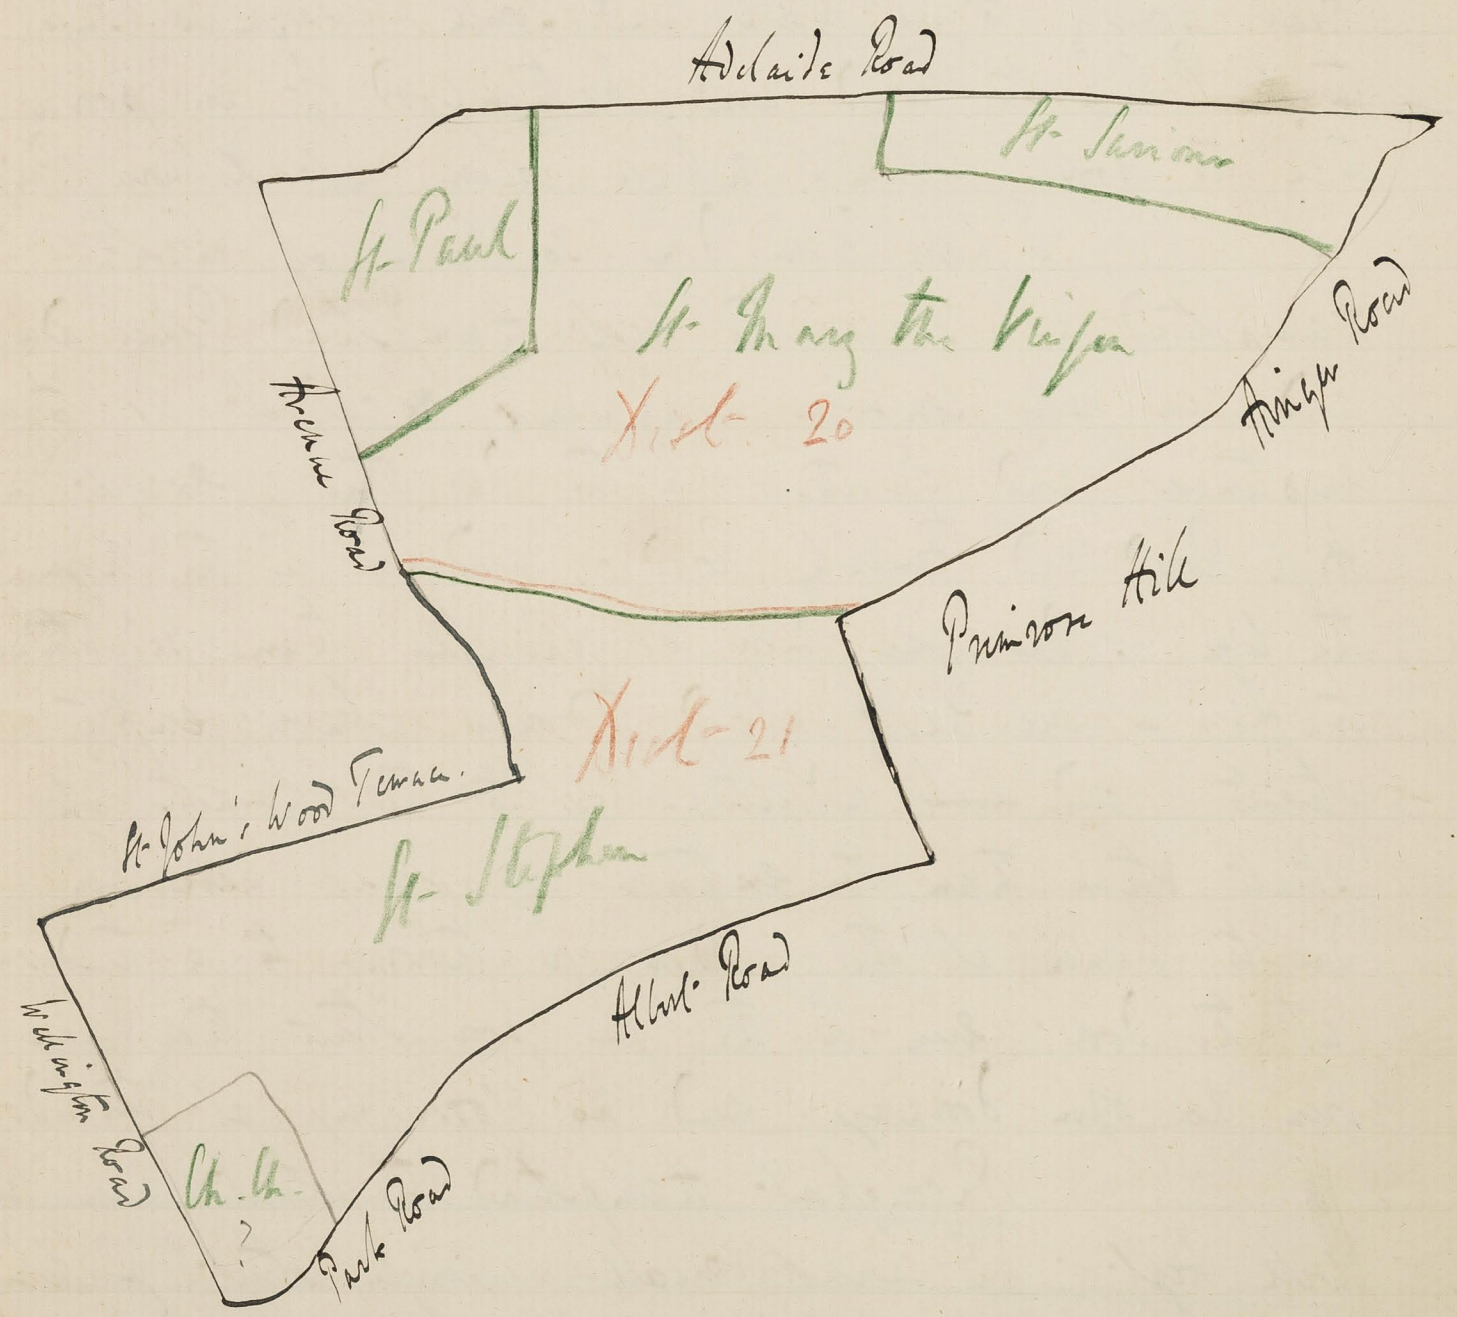 Adelaide Road
St Saviour
St Paul
St Mary the Virgin
Ainger Road
Dist. 20
Avenue Road
Primrose Hill
Dist 21
St John's Wood Terrace.
St Stephen
Albert Road
Wellington Road
Ch. Ch.
?
Park Road